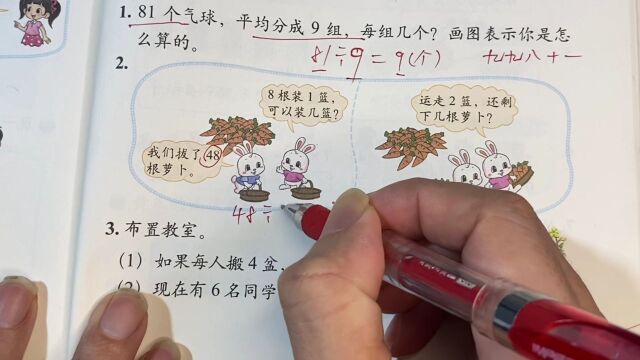 1. 81个气球，平均分成9组，每组几个？画图表示你是怎
么算的。
81÷9=9(个) 九九八十一
2.
8根装1篮，
可以装几篮？
我们拔了48
根萝卜。
运走2篮，还剩
下几根萝卜？
48÷
3. 布置教室。
(1) 如果每人搬4盆，
(2) 现在有6名同学